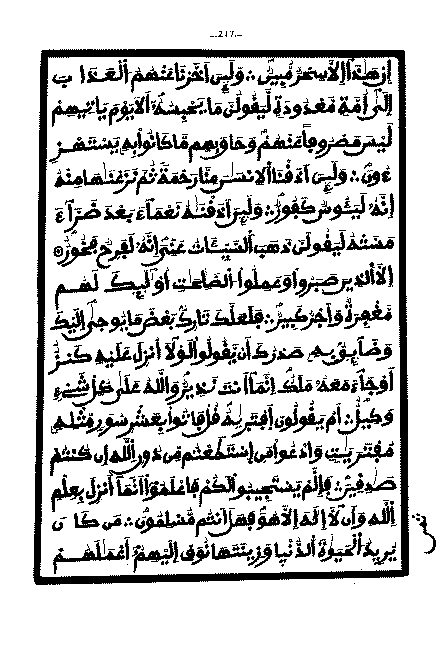 -217-
إن هذا إلا سحر مبين ∴ ولين اخرنا عنهم العذاب
إلى أمة معدودة ليقولن ما يحبسه ألا يوم ياتيهم
ليس مصروفا عنهم وحاق بهم ما كانوا به يستهز
ءون ∴ ولين اذقنا الانسن منا رحمة ثم نزعنها منه
إنه ليئوس كفور ∴ ولين اذقنه نعماء بعد ضراء
مسته ليقولن ذهب السيئات عني إنه لفرح فخور
إلا الذين صبروا وعملوا الصلحت أولئك لهم
مغفرة وأجر كبير ∴ فلعلك تارك بعض ما يوحى إليك
وضائق به صدرك أن يقولوا لولا أنزل عليه كنز
أو جاء معه ملك إنما أنت نذير والله على كل شيء
وكيل ∴ أم يقولون افتريه قل فاتوا بعشر سور مثله
مفتريت وادعوا من استطعتم من دون الله إن كنتم
صدقين ∴ فإلم يستجيبوا لكم فاعلموا أنما أنزل بعلم
الله وأن لا إله إلا هو فهل أنتم مسلمون ∴ من كان
يريد الحيوة الدنيا وزينتها نوف إليهم أعملهم